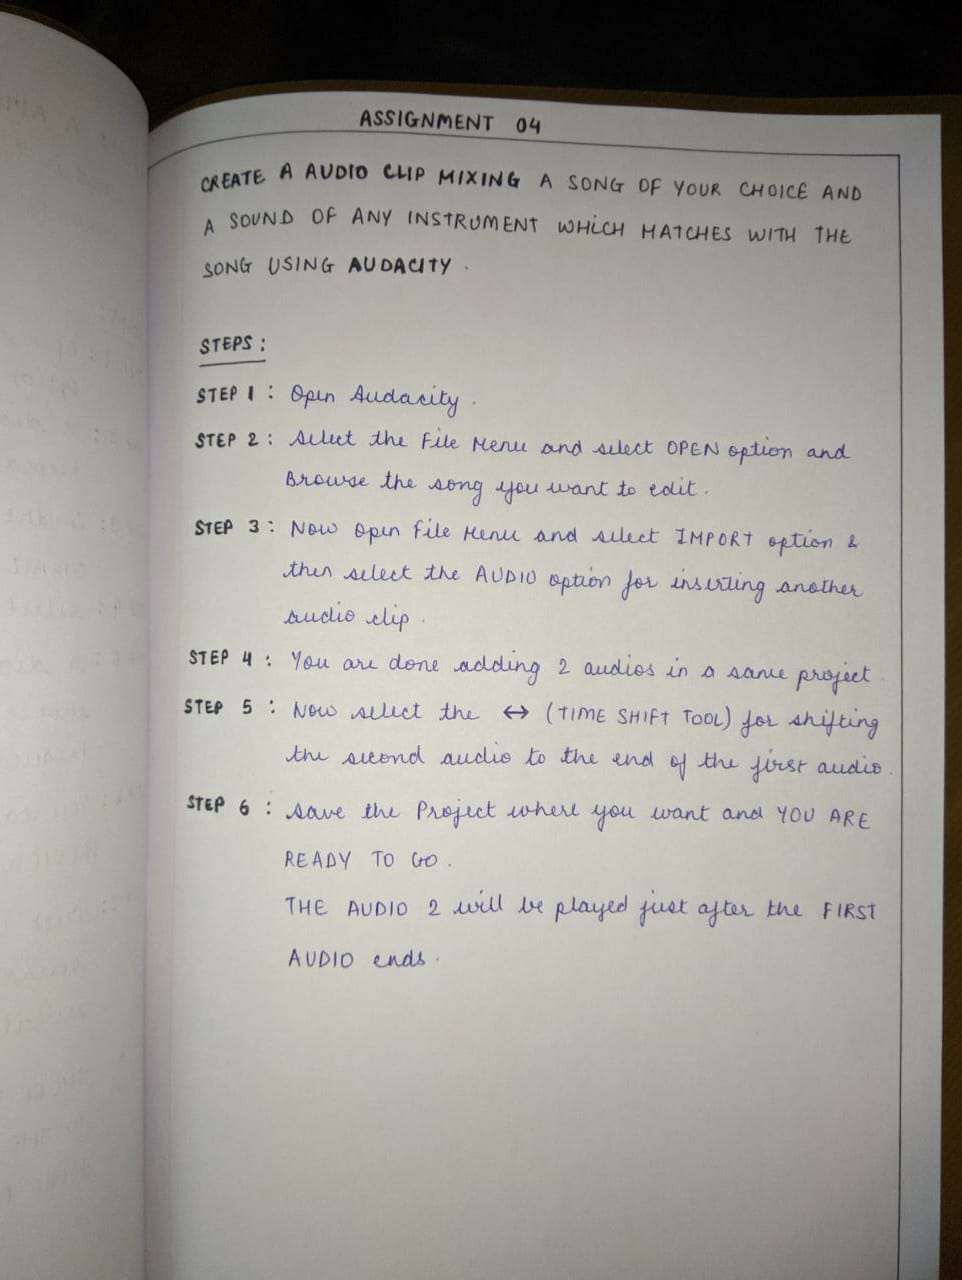 ASSIGNMENT 04
CREATE A AUDIO CLIP MIXING A SONG OF YOUR CHOICE AND
A SOUND OF ANY INSTRUMENT WHICH MATCHES WITH THE
SONG USING AUDACITY .
STEPS :
STEP 1 : Open Audacity .
STEP 2 : Select the File Menu and select OPEN option and
Browse the song you want to edit .
STEP 3 : Now open File Menu and select IMPORT option &
then select the AUDIO option for inserting another
audio clip .
STEP 4 : You are done adding 2 audios in a same project .
STEP 5 : Now select the ↔ (TIME SHIFT TOOL) for shifting
the second audio to the end of the first audio .
STEP 6 : Save the Project where you want and YOU ARE
READY TO GO .
THE AUDIO 2 will be played just after the FIRST
AUDIO ends .